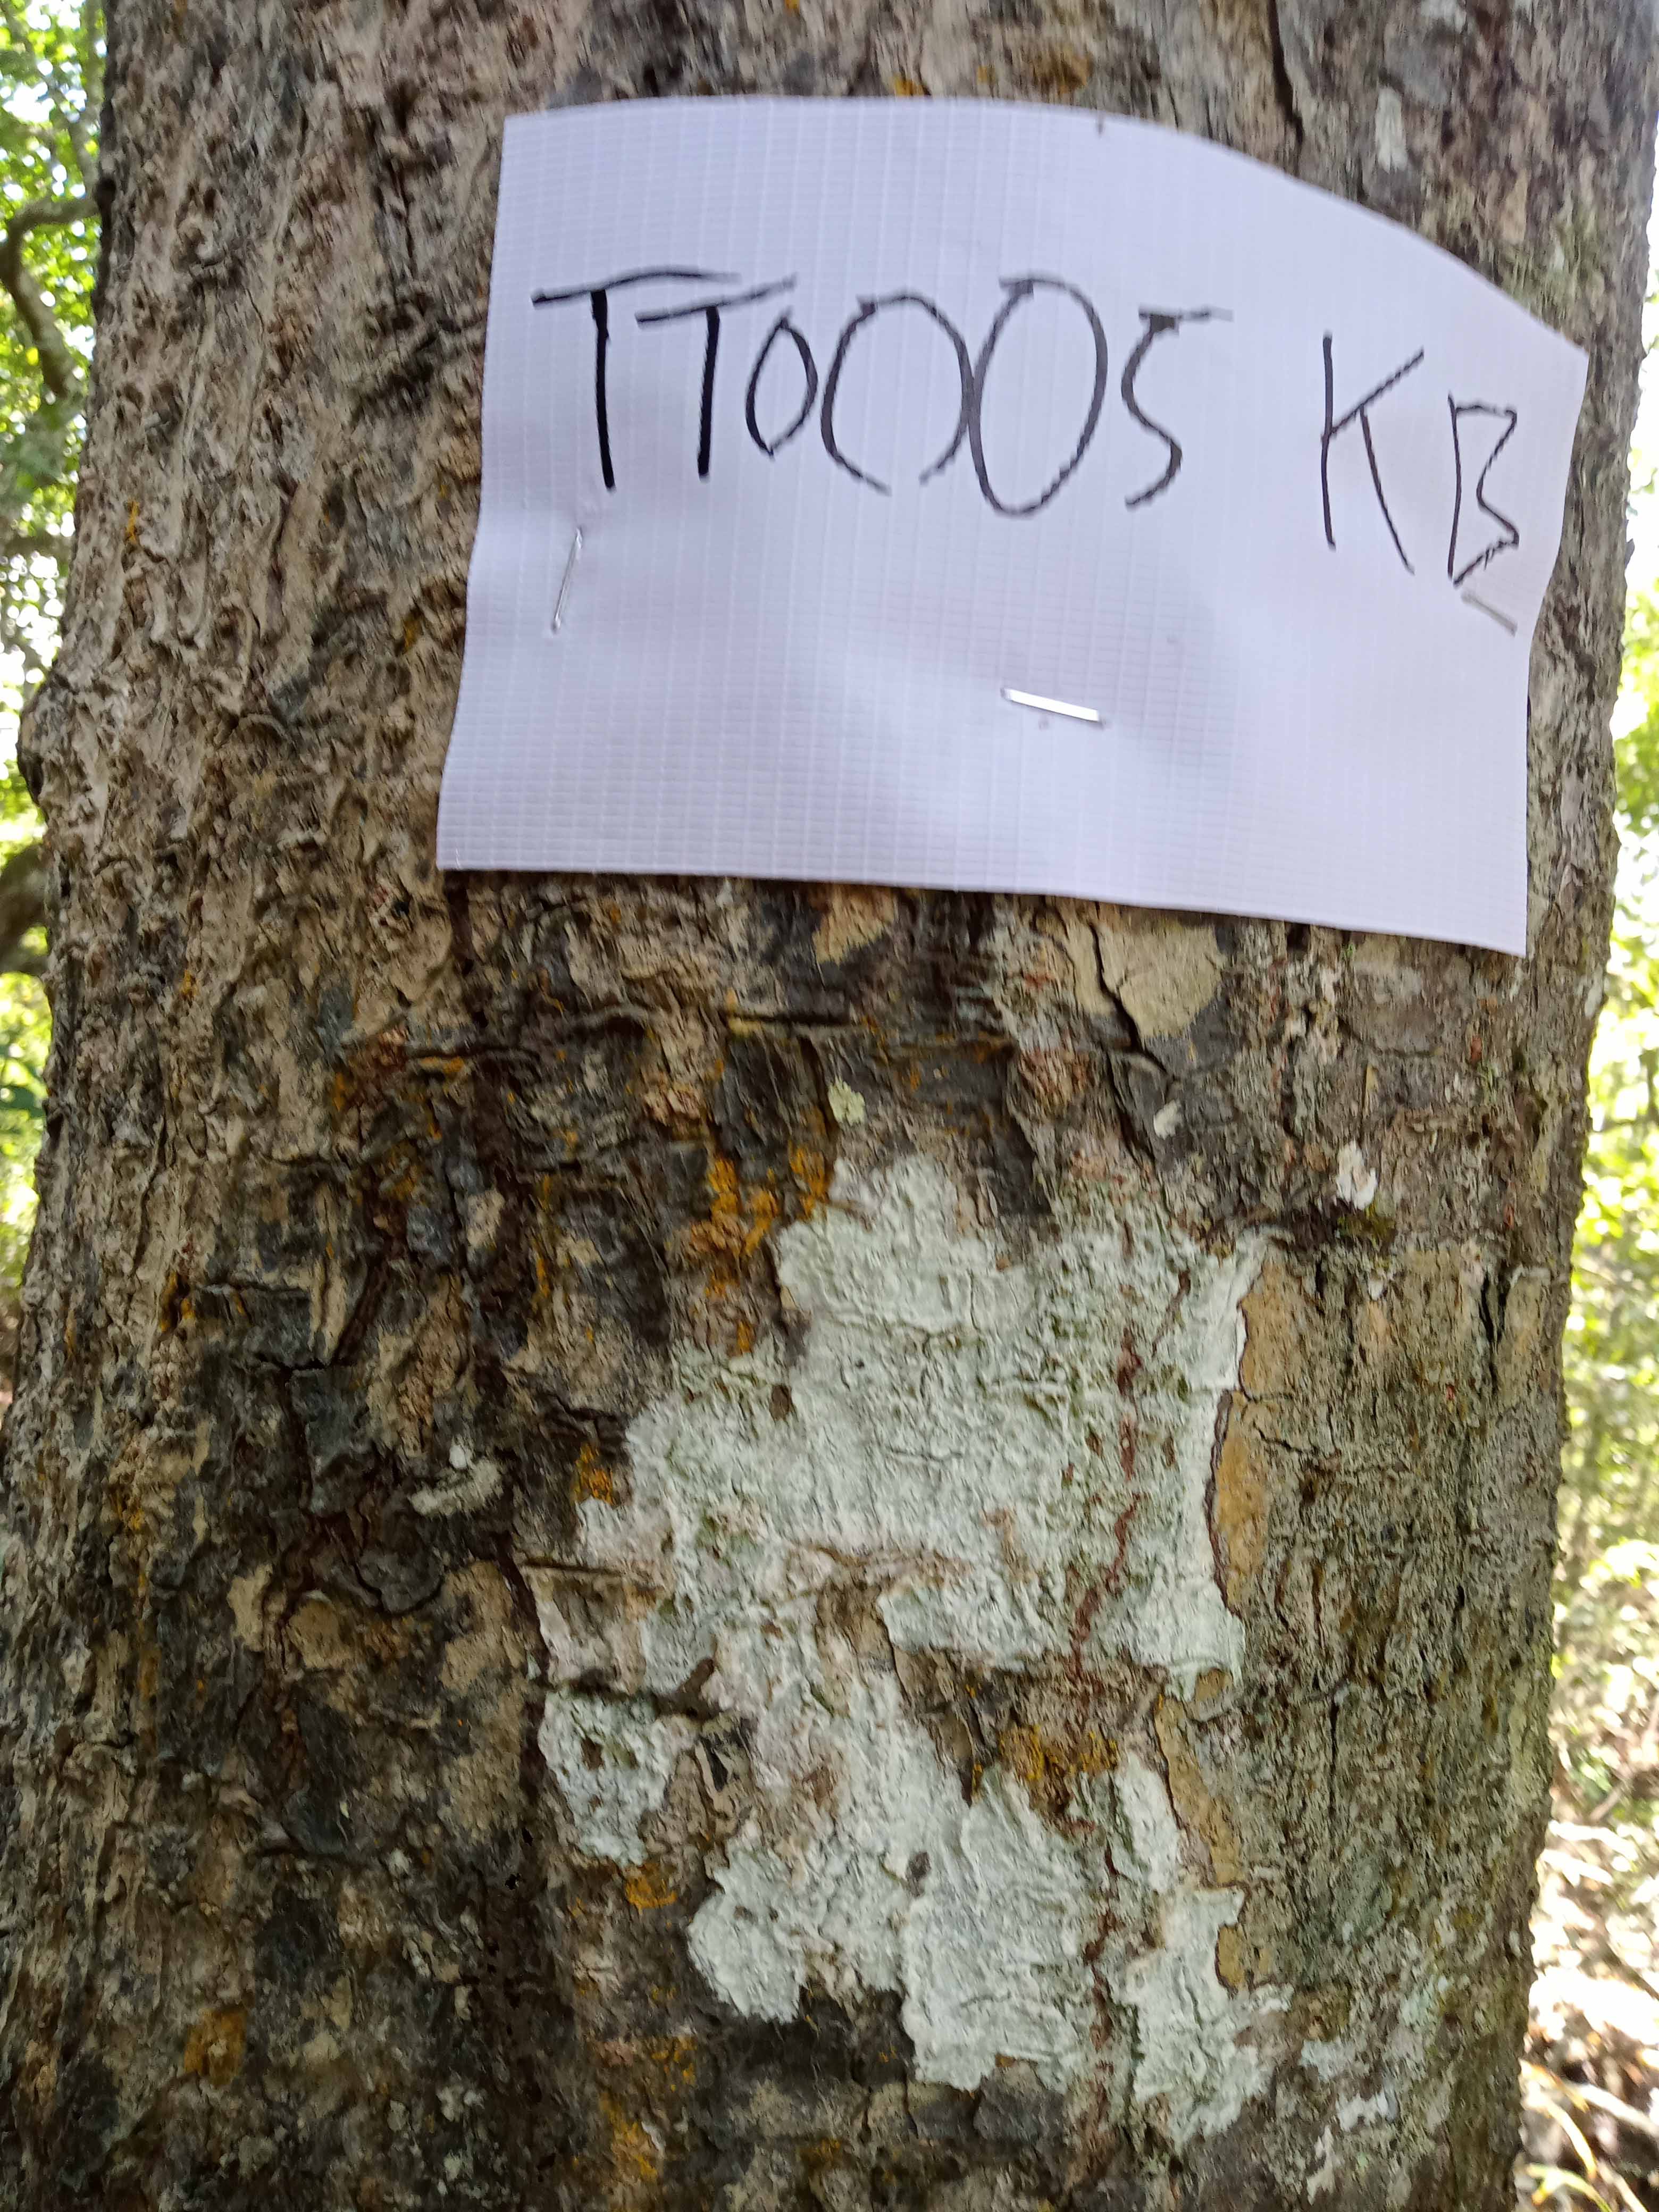 TT0005 KB